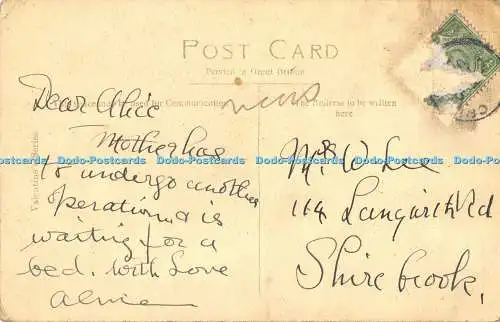 POST CARD
Printed in Great Britain
This Space may be used for Communication
The Address to be written
here
Valentine's Series
Dear Alice
Mother has
to undergo another
operation & is
waiting for a
bed. With Love
Mrs W Lee
114 Langwith Rd
Shirebrook,
Dodo-Postcards Dodo-Postcards Dodo-Postcards Dodo-Postcards Dodo-Postcards